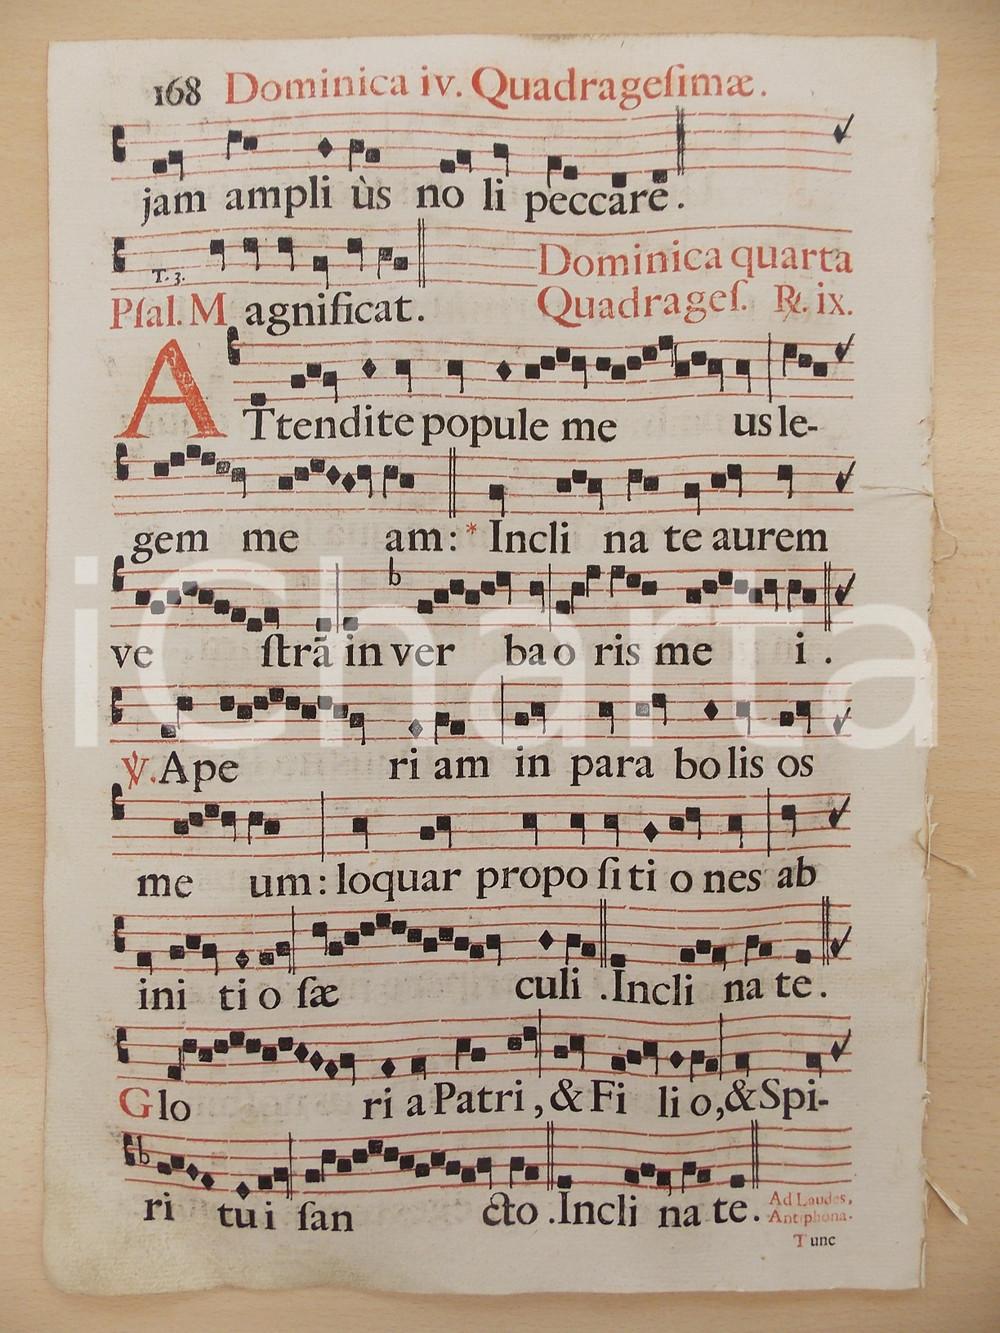 168 Dominica iv. Quadrageſimæ.
jam ampli ùs no li peccare.
T. 3.
Pſal. Magnificat.
Dominica quarta
Quadrageſ. ℟. ix.
ATtendite popule me us le-
gem me am: * Incli na te aurem
b
ve ſtrā in ver ba o ris me i.
℣. Ape ri am in para bo lis os
me um: loquar propo ſi ti o nes ab
ini ti o ſæ culi. Incli na te.
Glo ri a Patri, & Fi li o, & Spi-
b
ri tu i ſan cto. Incli na te.
Ad Laudes,
Antiphona.
Tunc
iCharta